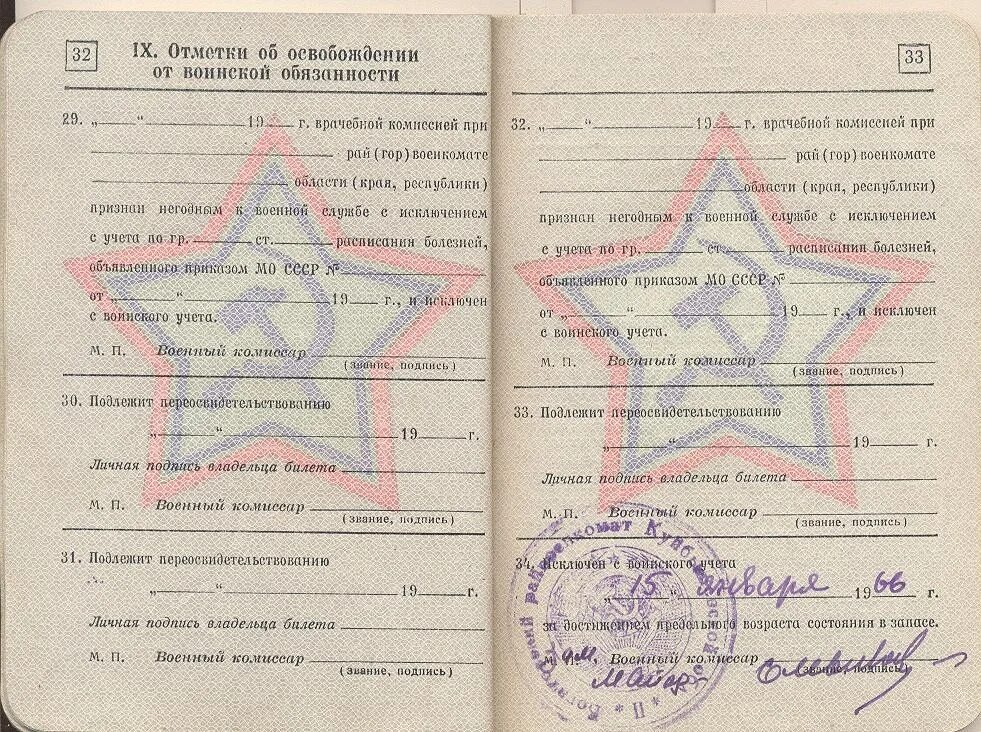 32
IX. Отметки об освобождении
от воинской обязанности
29. „ “ 19 г. врачебной комиссией при
рай (гор) военкомате
области (края, республики)
признан негодным к военной службе с исключением
с учета по гр. ст. расписания болезней,
объявленного приказом МО СССР №
от „ “ 19 г., и исключен
с воинского учета.
М. П. Военный комиссар
(звание, подпись)
30. Подлежит переосвидетельствованию
„ “ 19 г.
Личная подпись владельца билета
М. П. Военный комиссар
(звание, подпись)
31. Подлежит переосвидетельствованию
„ “ 19 г.
Личная подпись владельца билета
М. П. Военный комиссар
(звание, подпись)
33
32. „ “ 19 г. врачебной комиссией при
рай (гор) военкомате
области (края, республики)
признан негодным к военной службе с исключением
с учета по гр. ст. расписания болезней,
объявленного приказом МО СССР №
от „ “ 19 г., и исключен
с воинского учета.
М. П. Военный комиссар
(звание, подпись)
33. Подлежит переосвидетельствованию
„ “ 19 г.
Личная подпись владельца билета
М. П. Военный комиссар
(звание, подпись)
34. Исключен с воинского учета
„ 15 “ января 1966 г.
за достижением предельного возраста состояния в запасе.
М. П. Военный комиссар
майор
(звание, подпись)
райвоенкомат Куйбышевской